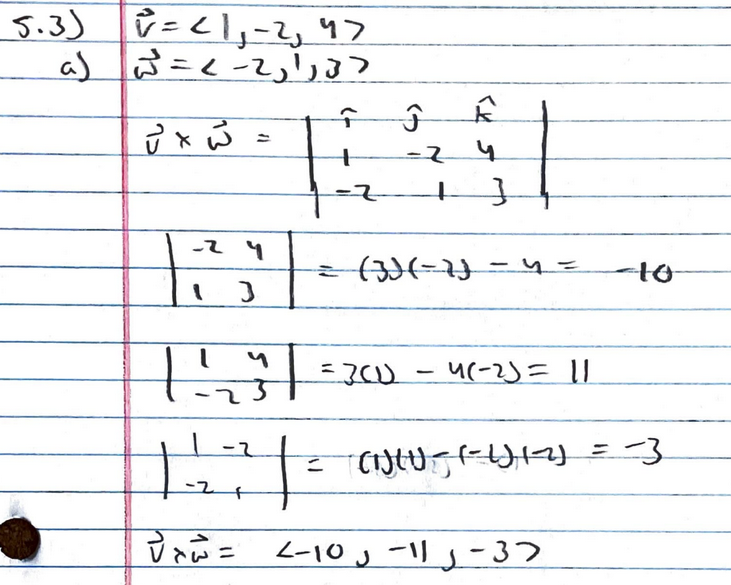 5.3) v⃗ = <1, -2, 4>
a) w⃗ = < -2, 1, 3>
v⃗ × w⃗ = | î ĵ k̂ |
| 1 -2 4 |
| -2 1 3 |
| -2 4 |
| 1 3 | = (3)(-2) - 4 = -10
| 1 4 |
| -2 3 | = 3(1) - 4(-2) = 11
| 1 -2 |
| -2 1 | = (1)(1) - (-2)(-2) = -3
v⃗ × w⃗ = <-10, -11, -3>